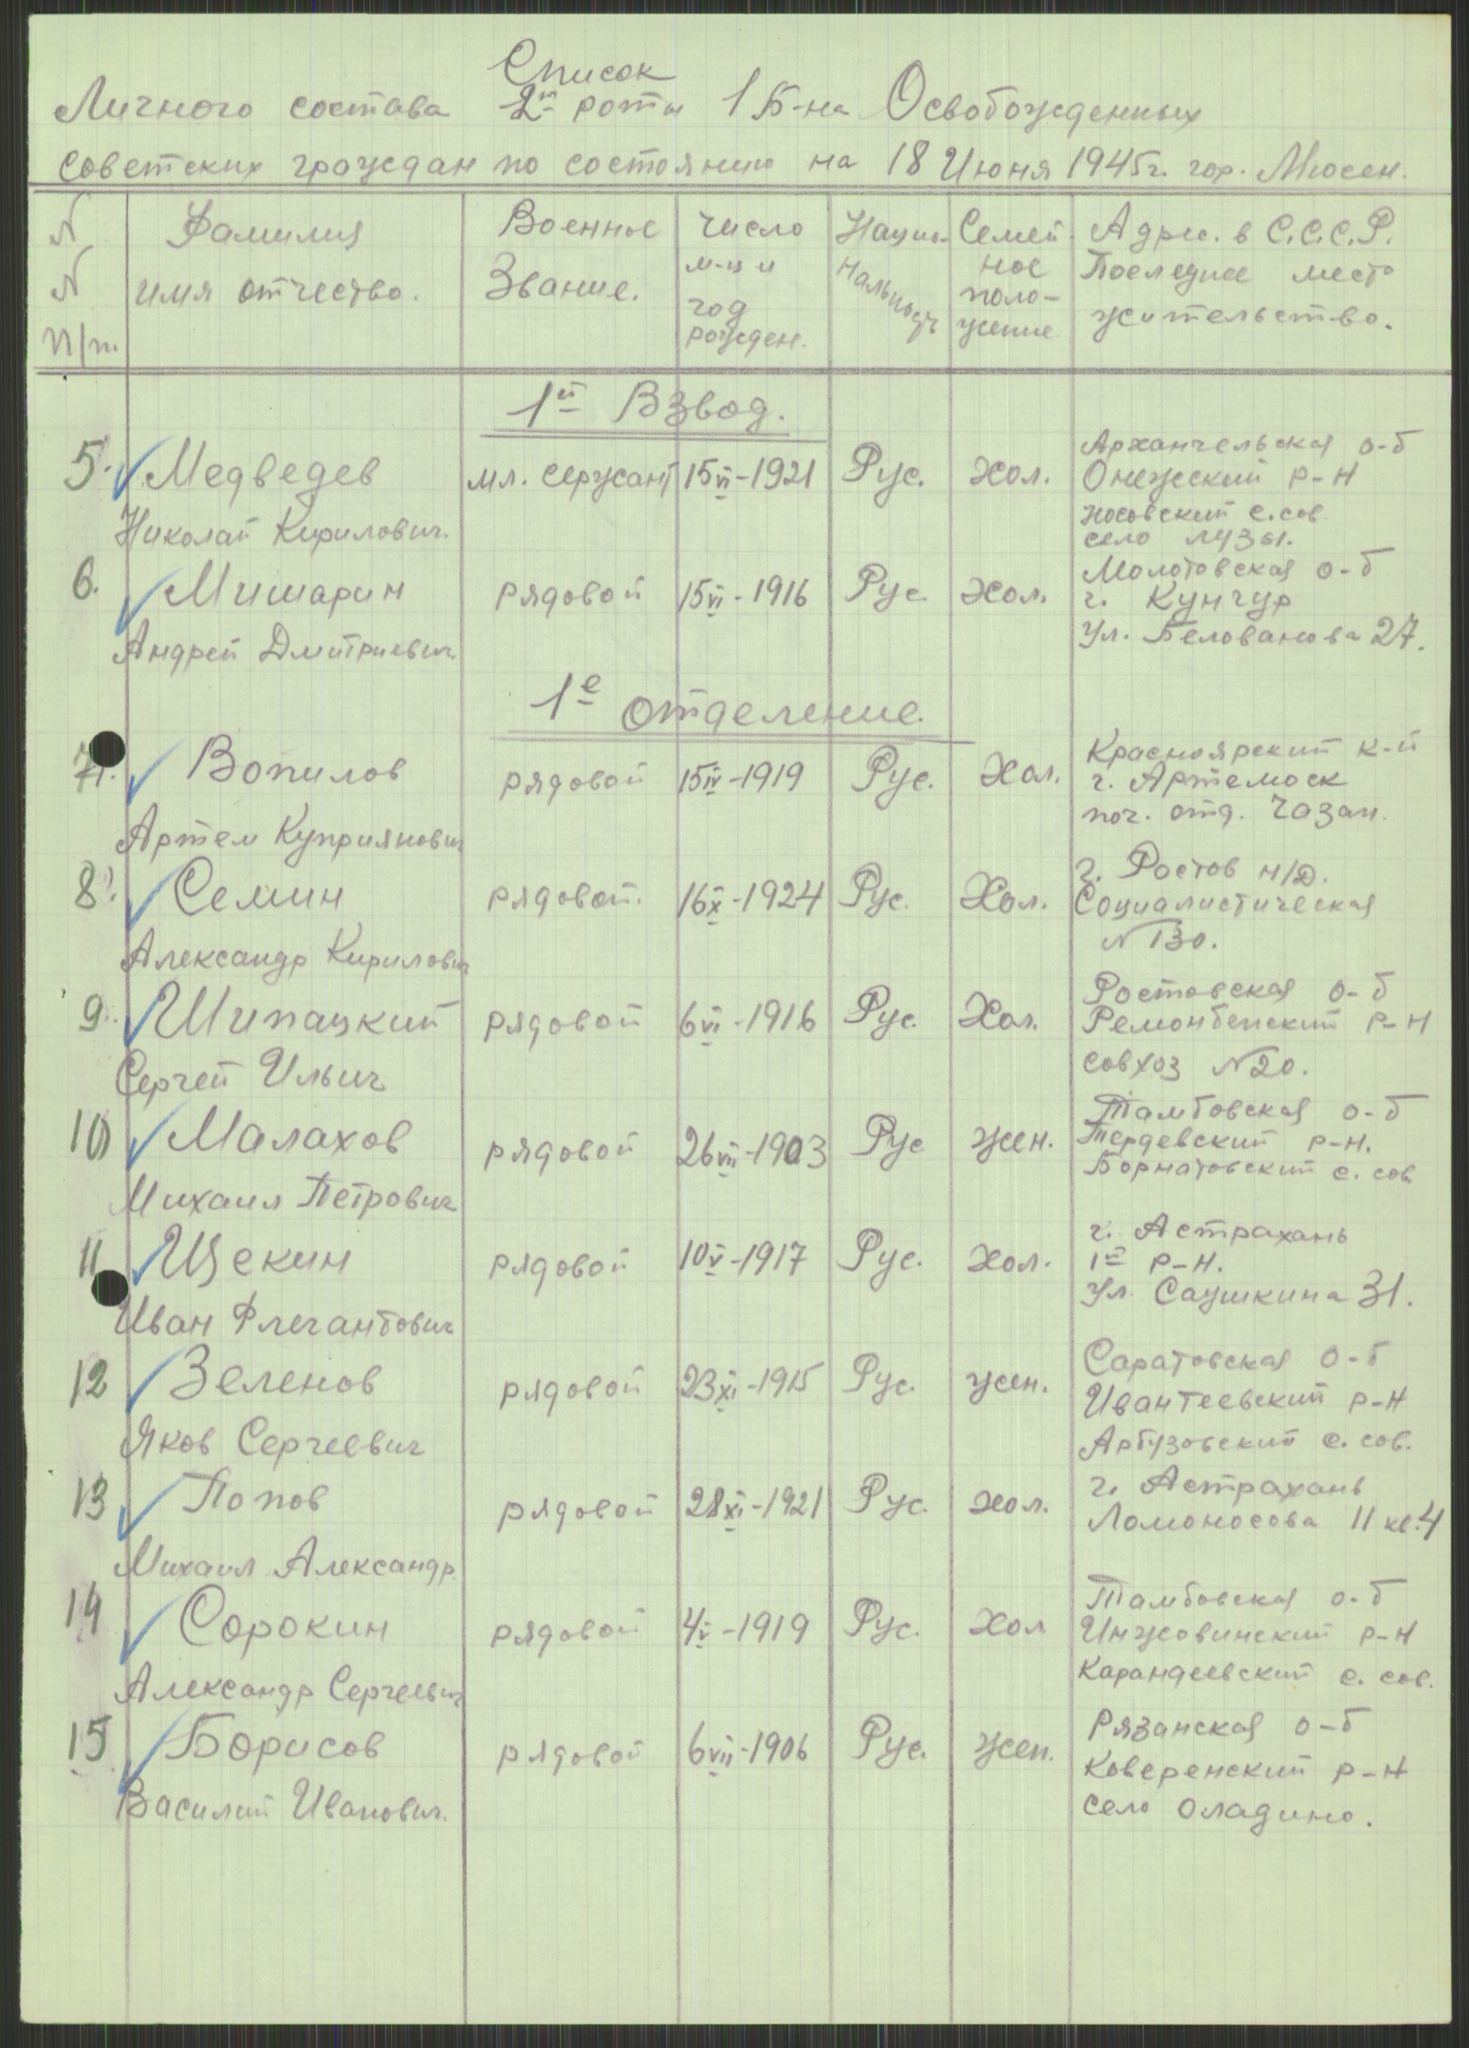 Список
Личного состава 2й роты 1 Б-на Освобожденных
советских граждан по состоянию на 18 Июня 1945г. гор. Мюсен.
N N п/п. Фамилия имя отчество. Военное Звание. Число м-ц и год рожден. Нацио- нальность Семей- ное поло- жение Адрес. в С.С.С.Р. Последнее место жительство.
1й Взвод.
5. Медведев мл. сержант 15 VI-1921 Рус. Хол. Архангельская о-б
Онежский р-н
Николай Кирилович. носовский с.сов.
село лузы.
6. Мишарин рядовой 15 VI-1916 Рус. Хол. Молотовская о-б
г. Кунгур
Андрей Дмитриевич. ул. Белованова 27.
1е отделение.
7. Вопилов рядовой 15 IV-1919 Рус. Хол. Красноярский к-й
г. Артемоск
Артем Куприянович поч. отд. Чазан.
8. Семин рядовой. 16 X-1924 Рус. Хол. г. Ростов н/Д.
Социалистическая
Александр Кирилович N 130.
9. Шипацкий рядовой 6 VI-1916 Рус. Хол. Ростовская о-б
Ремонбенский р-н
Сергей Ильич совхоз N20.
10 Малахов рядовой 26 VII-1903 Рус жен. Тамбовская о-б
Тердевский р-н.
Михаил Петрович Борнатовский с. сов.
11 Щекин рядовой 10 V-1917 Рус. хол. г. Астрахань
1й р-н.
Иван Флегантович ул. Саушкина 31.
12 Зеленов рядовой 23 XI-1915 Рус. жен. Саратовская о-б
Ивантеевский р-н
Яков Сергеевич Арбузовский с. сов.
13 Попов рядовой 28 XI-1921 Рус. хол. г. Астрахань
Ломоносова 11 кв.4
Михаил Александр.
14 Сорокин рядовой 4 V-1919 Рус. Хол Тамбовская о-б
Инжовинский р-н
Александр Сергеевич Карандеевский с. сов.
15 Борисов рядовой 6 VII-1906 Рус. жен. Рязанская о-б
Каверенский р-н
Василий Иванович. село Оладино.